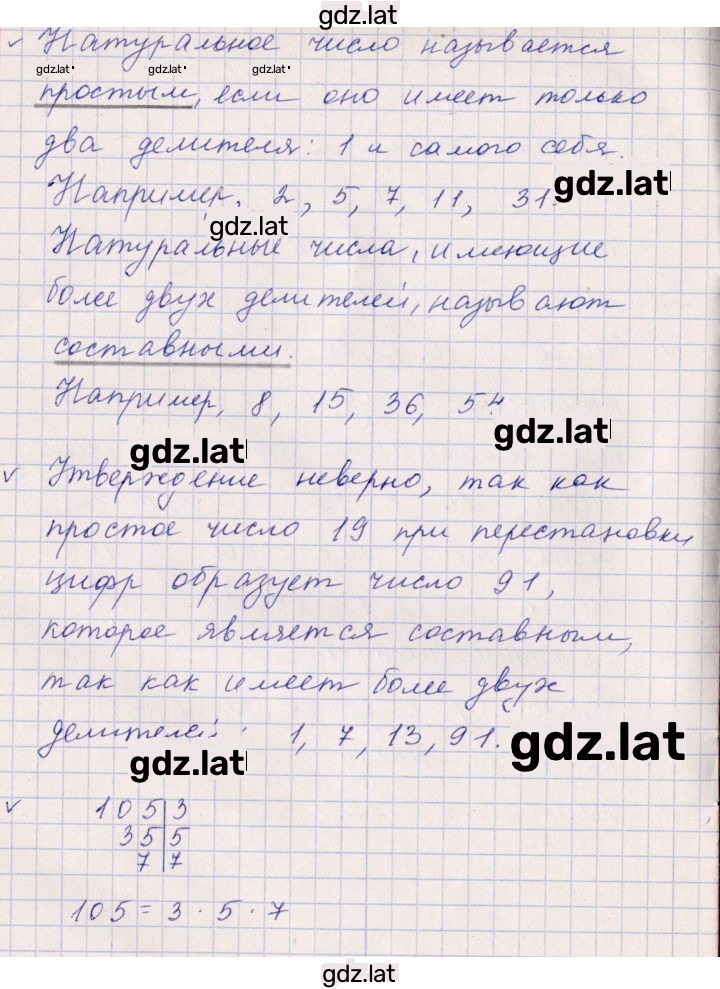 gdz.lat
Натуральное число называется
gdz.lat gdz.lat gdz.lat
простым, если оно имеет только
два делителя: 1 и самого себя.
Например, 2, 5, 7, 11, 31.
gdz.lat
gdz.lat
Натуральные числа, имеющие
более двух делителей, называют
составными.
Например, 8, 15, 36, 54
gdz.lat
gdz.lat
Утверждение неверно, так как
простое число 19 при перестановки
цифр образует число 91,
которое является составным,
так как имеет более двух
делителей: 1, 7, 13, 91.
gdz.lat
gdz.lat
105|3
35|5
7|7
105 = 3 · 5 · 7
gdz.lat